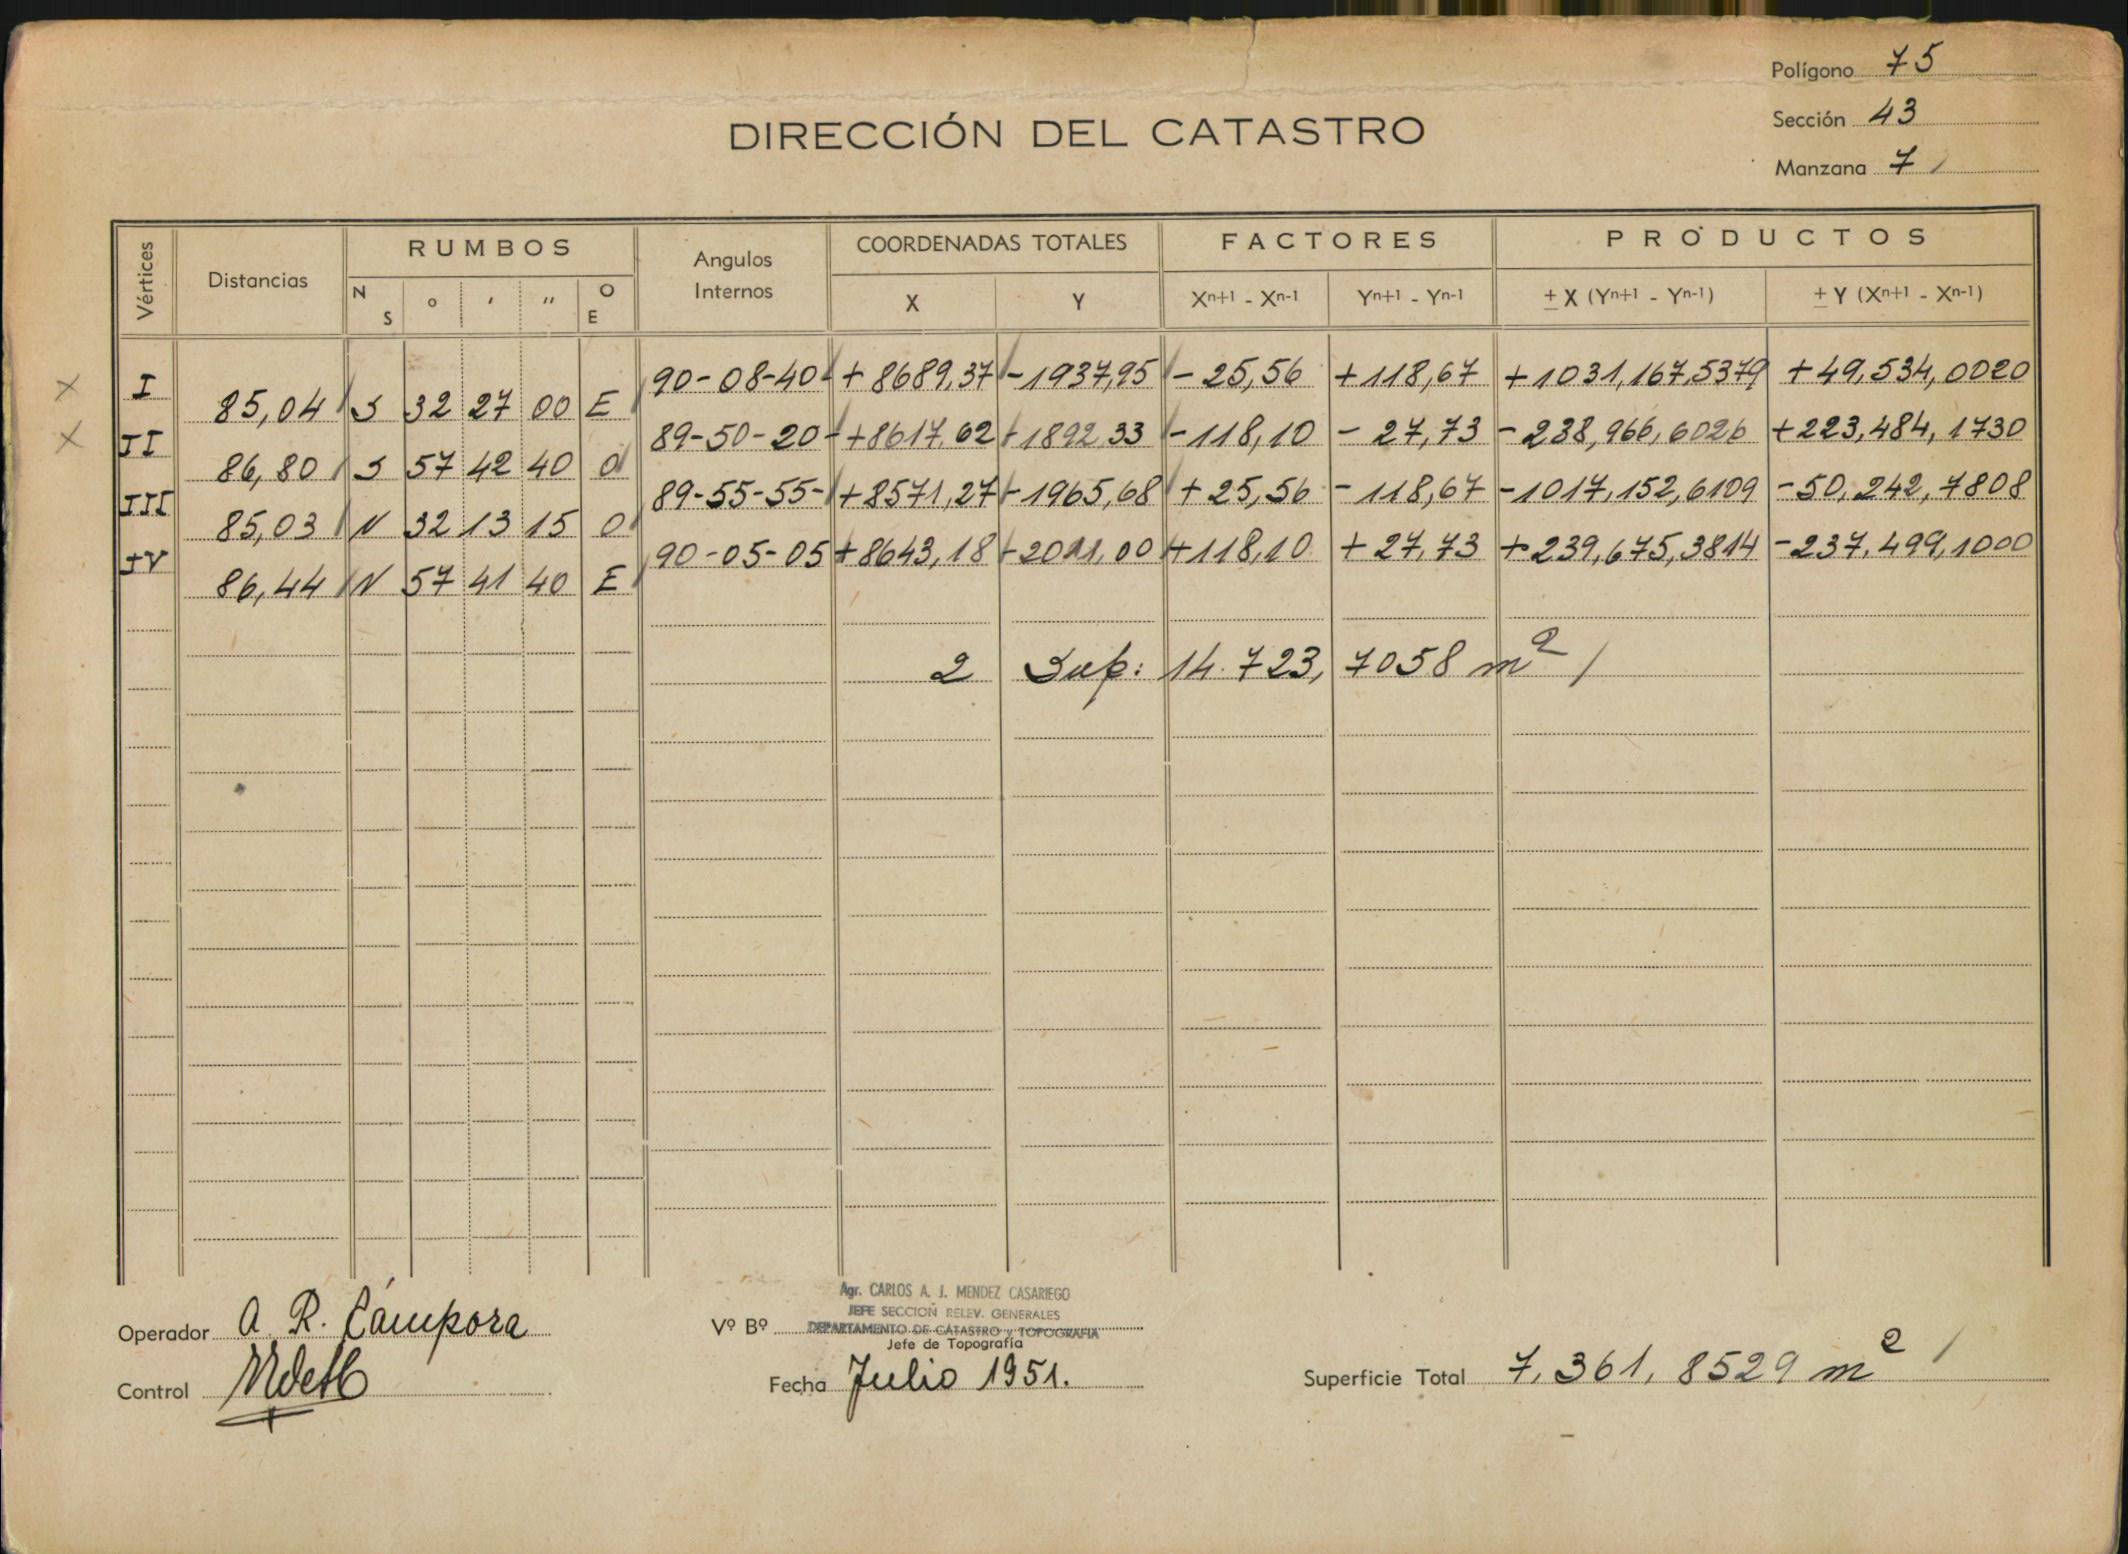 Polígono 75
Sección 43
Manzana 7
DIRECCIÓN DEL CATASTRO
Vértices Distancias RUMBOS Angulos Internos COORDENADAS TOTALES FACTORES PRODUCTOS
N S ° ' " O E X Y Xn+1 - Xn-1 Yn+1 - Yn-1 ± X (Yn+1 - Yn-1) ± Y (Xn+1 - Xn-1)
I 90-08-40 + 8689,37 -1937,95 - 25,56 +118,67 +1031,167,5379 +49,534,0020
85,04 S 32 27 00 E
II 89-50-20 +8617,62 -1892,33 -118,10 - 27,73 -238,966,6026 +223,484,1730
86,80 S 57 42 40 O
III 89-55-55 +8571,27 -1965,68 +25,56 -118,67 -1017,152,6109 -50,242,7808
85,03 N 32 13 15 O
IV 90-05-05 +8643,18 -2011,00 +118,10 +27,73 +239,675,3814 -237,499,1000
86,44 N 57 41 40 E
2 Sup: 14.723,7058 m2
Agr. CARLOS A. J. MENDEZ CASARIEGO
JEFE SECCION RELEV. GENERALES
Operador A. R. Cámpora Vº Bº DEPARTAMENTO DE CATASTRO y TOPOGRAFIA
Jefe de Topografía
Control Fecha Julio 1951. Superficie Total 7.361,8529 m2